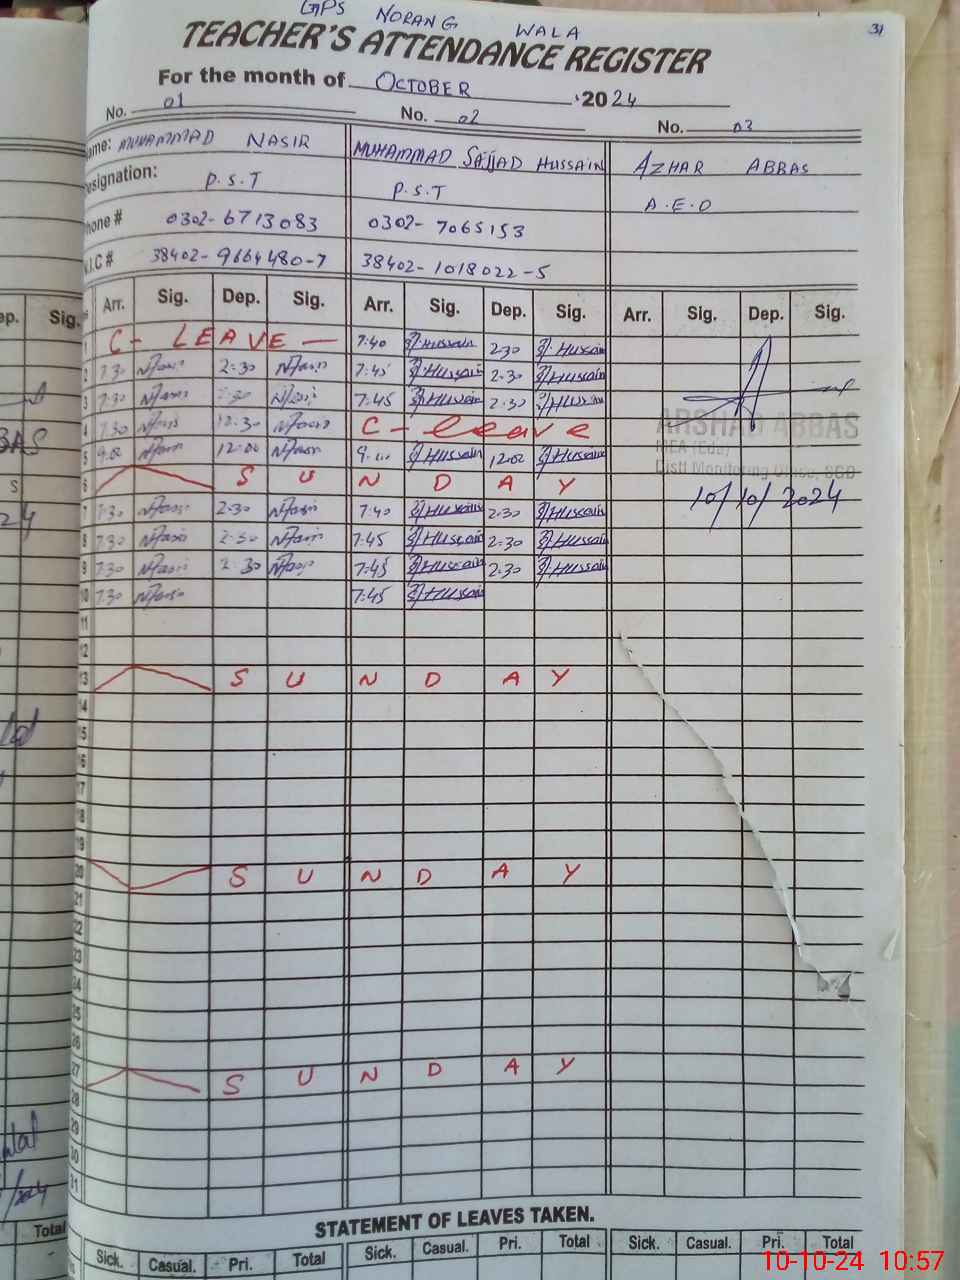 GPS NORANG WALA
31
TEACHER'S ATTENDANCE REGISTER
For the month of OCTOBER 2024
No. 01 No. 02 No. 03
ame: MUHAMMAD NASIR MUHAMMAD SAJJAD HUSSAIN AZHAR ABBAS
esignation: P.S.T P.S.T A.E.O
hone # 0302-6713083 0302-7065153
.I.C # 38402-9664480-7 38402-1018022-5
Arr. Sig. Dep. Sig. Arr. Sig. Dep. Sig. Arr. Sig. Dep. Sig.
1 C- LEAVE 7:40 Hussain 2:30 Hussain
2 7:30 Nasir 2:30 Nasir 7:45 Hussain 2:30 Hussain
3 7:30 Nasir 2:30 Nasir 7:45 Hussain 2:30 Hussain
4 7:30 Nasir 12:30 Nasir C-leave
ARSHAD ABBAS
5 9:00 Nasir 12:00 Nasir 9:00 Hussain 12:00 Hussain
MEA (Edu)
Distt Monitoring Office, SGD
6 S U N D A Y
10/10/2024
7 7:30 Nasir 2:30 Nasir 7:40 Hussain 2:30 Hussain
8 7:30 Nasir 2:30 Nasir 7:45 Hussain 2:30 Hussain
9 7:30 Nasir 2:30 Nasir 7:45 Hussain 2:30 Hussain
10 7:30 Nasir 7:45 Hussain
11
12
13 S U N D A Y
14
15
16
17
18
19
20 S U N D A Y
21
22
23
24
25
26
27 S U N D A Y
28
29
30
31
STATEMENT OF LEAVES TAKEN.
Sick. Casual. Pri. Total Sick. Casual. Pri. Total Sick. Casual. Dep. Total
ep. Sig.
BAS
Total
10-10-24 10:57